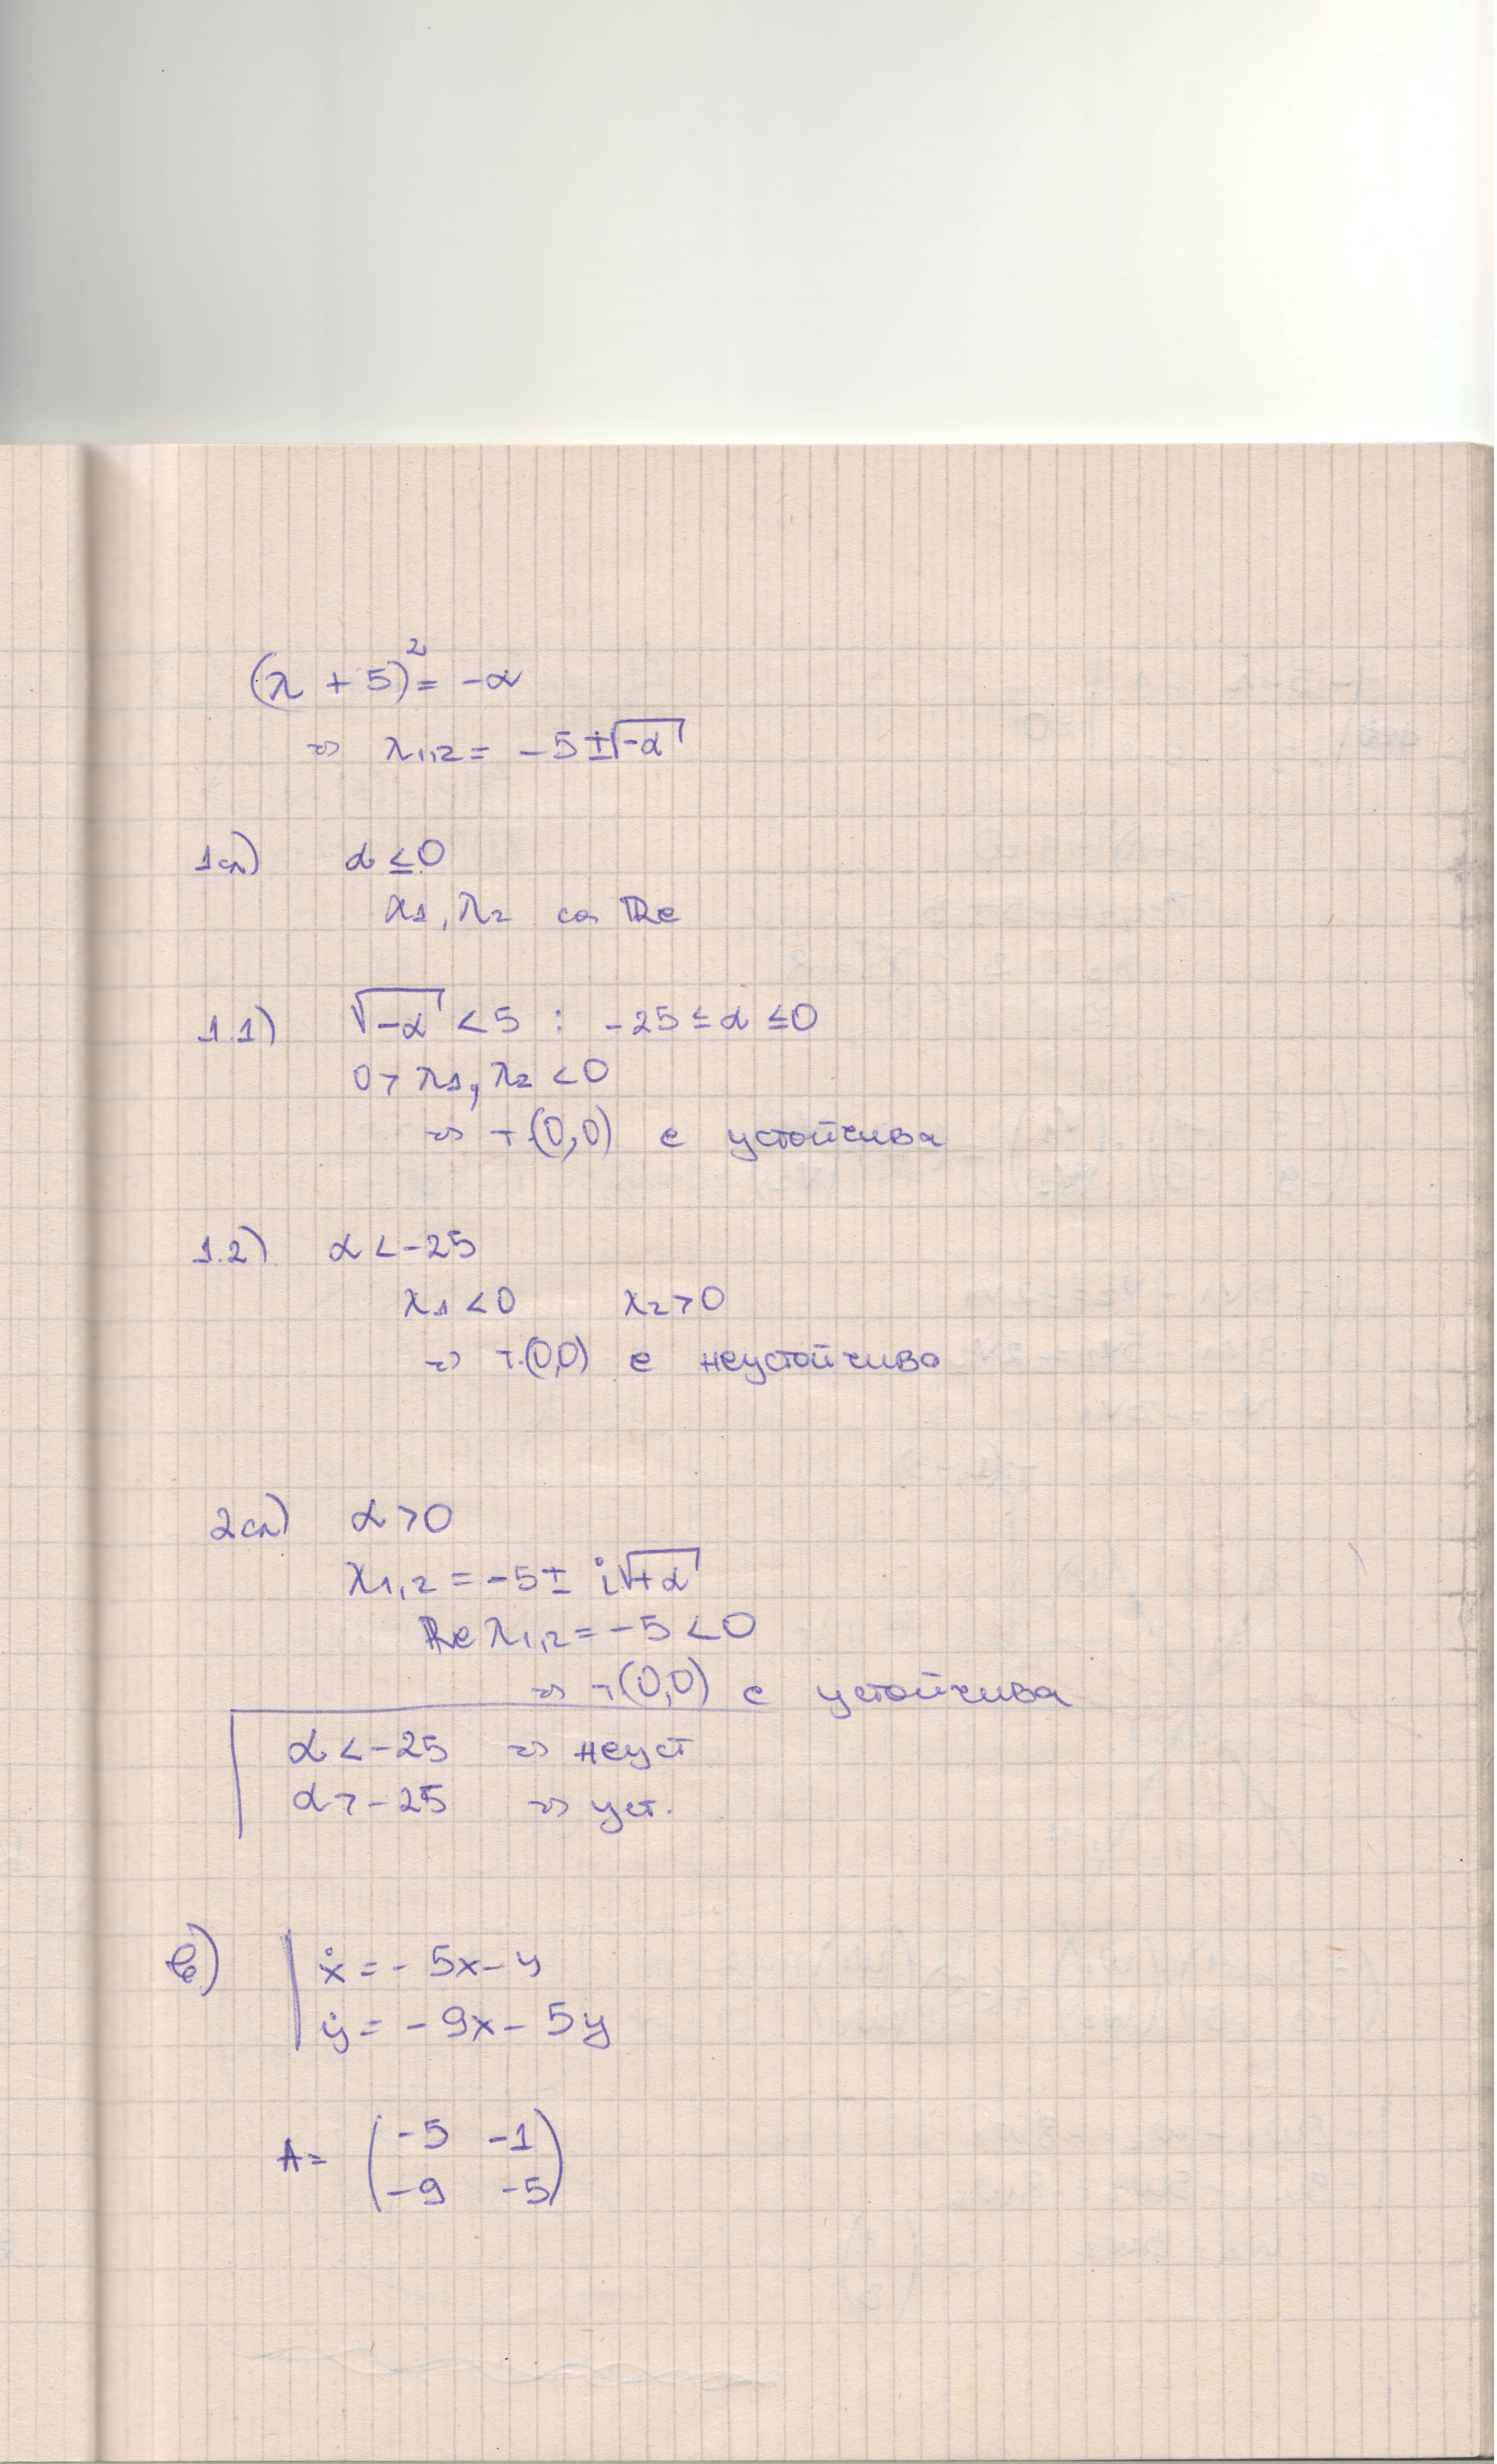 (λ + 5)² = -α
=> λ1,2 = -5 ± √-α
1сл) α ≤ 0
λ1, λ2 са Re
1.1) √-α < 5 : -25 ≤ α ≤ 0
0 > λ1, λ2 < 0
=> т.(0,0) е устойчива
1.2) α < -25
λ1 < 0 λ2 > 0
=> т.(0,0) е неустойчива
2сл) α > 0
λ1,2 = -5 ± i√+α
Re λ1,2 = -5 < 0
=> т.(0,0) е устойчива
α < -25 => неуст
α > -25 => уст.
в) ẋ = -5x - y
ẏ = -9x - 5y
A = (-5 -1
-9 -5)